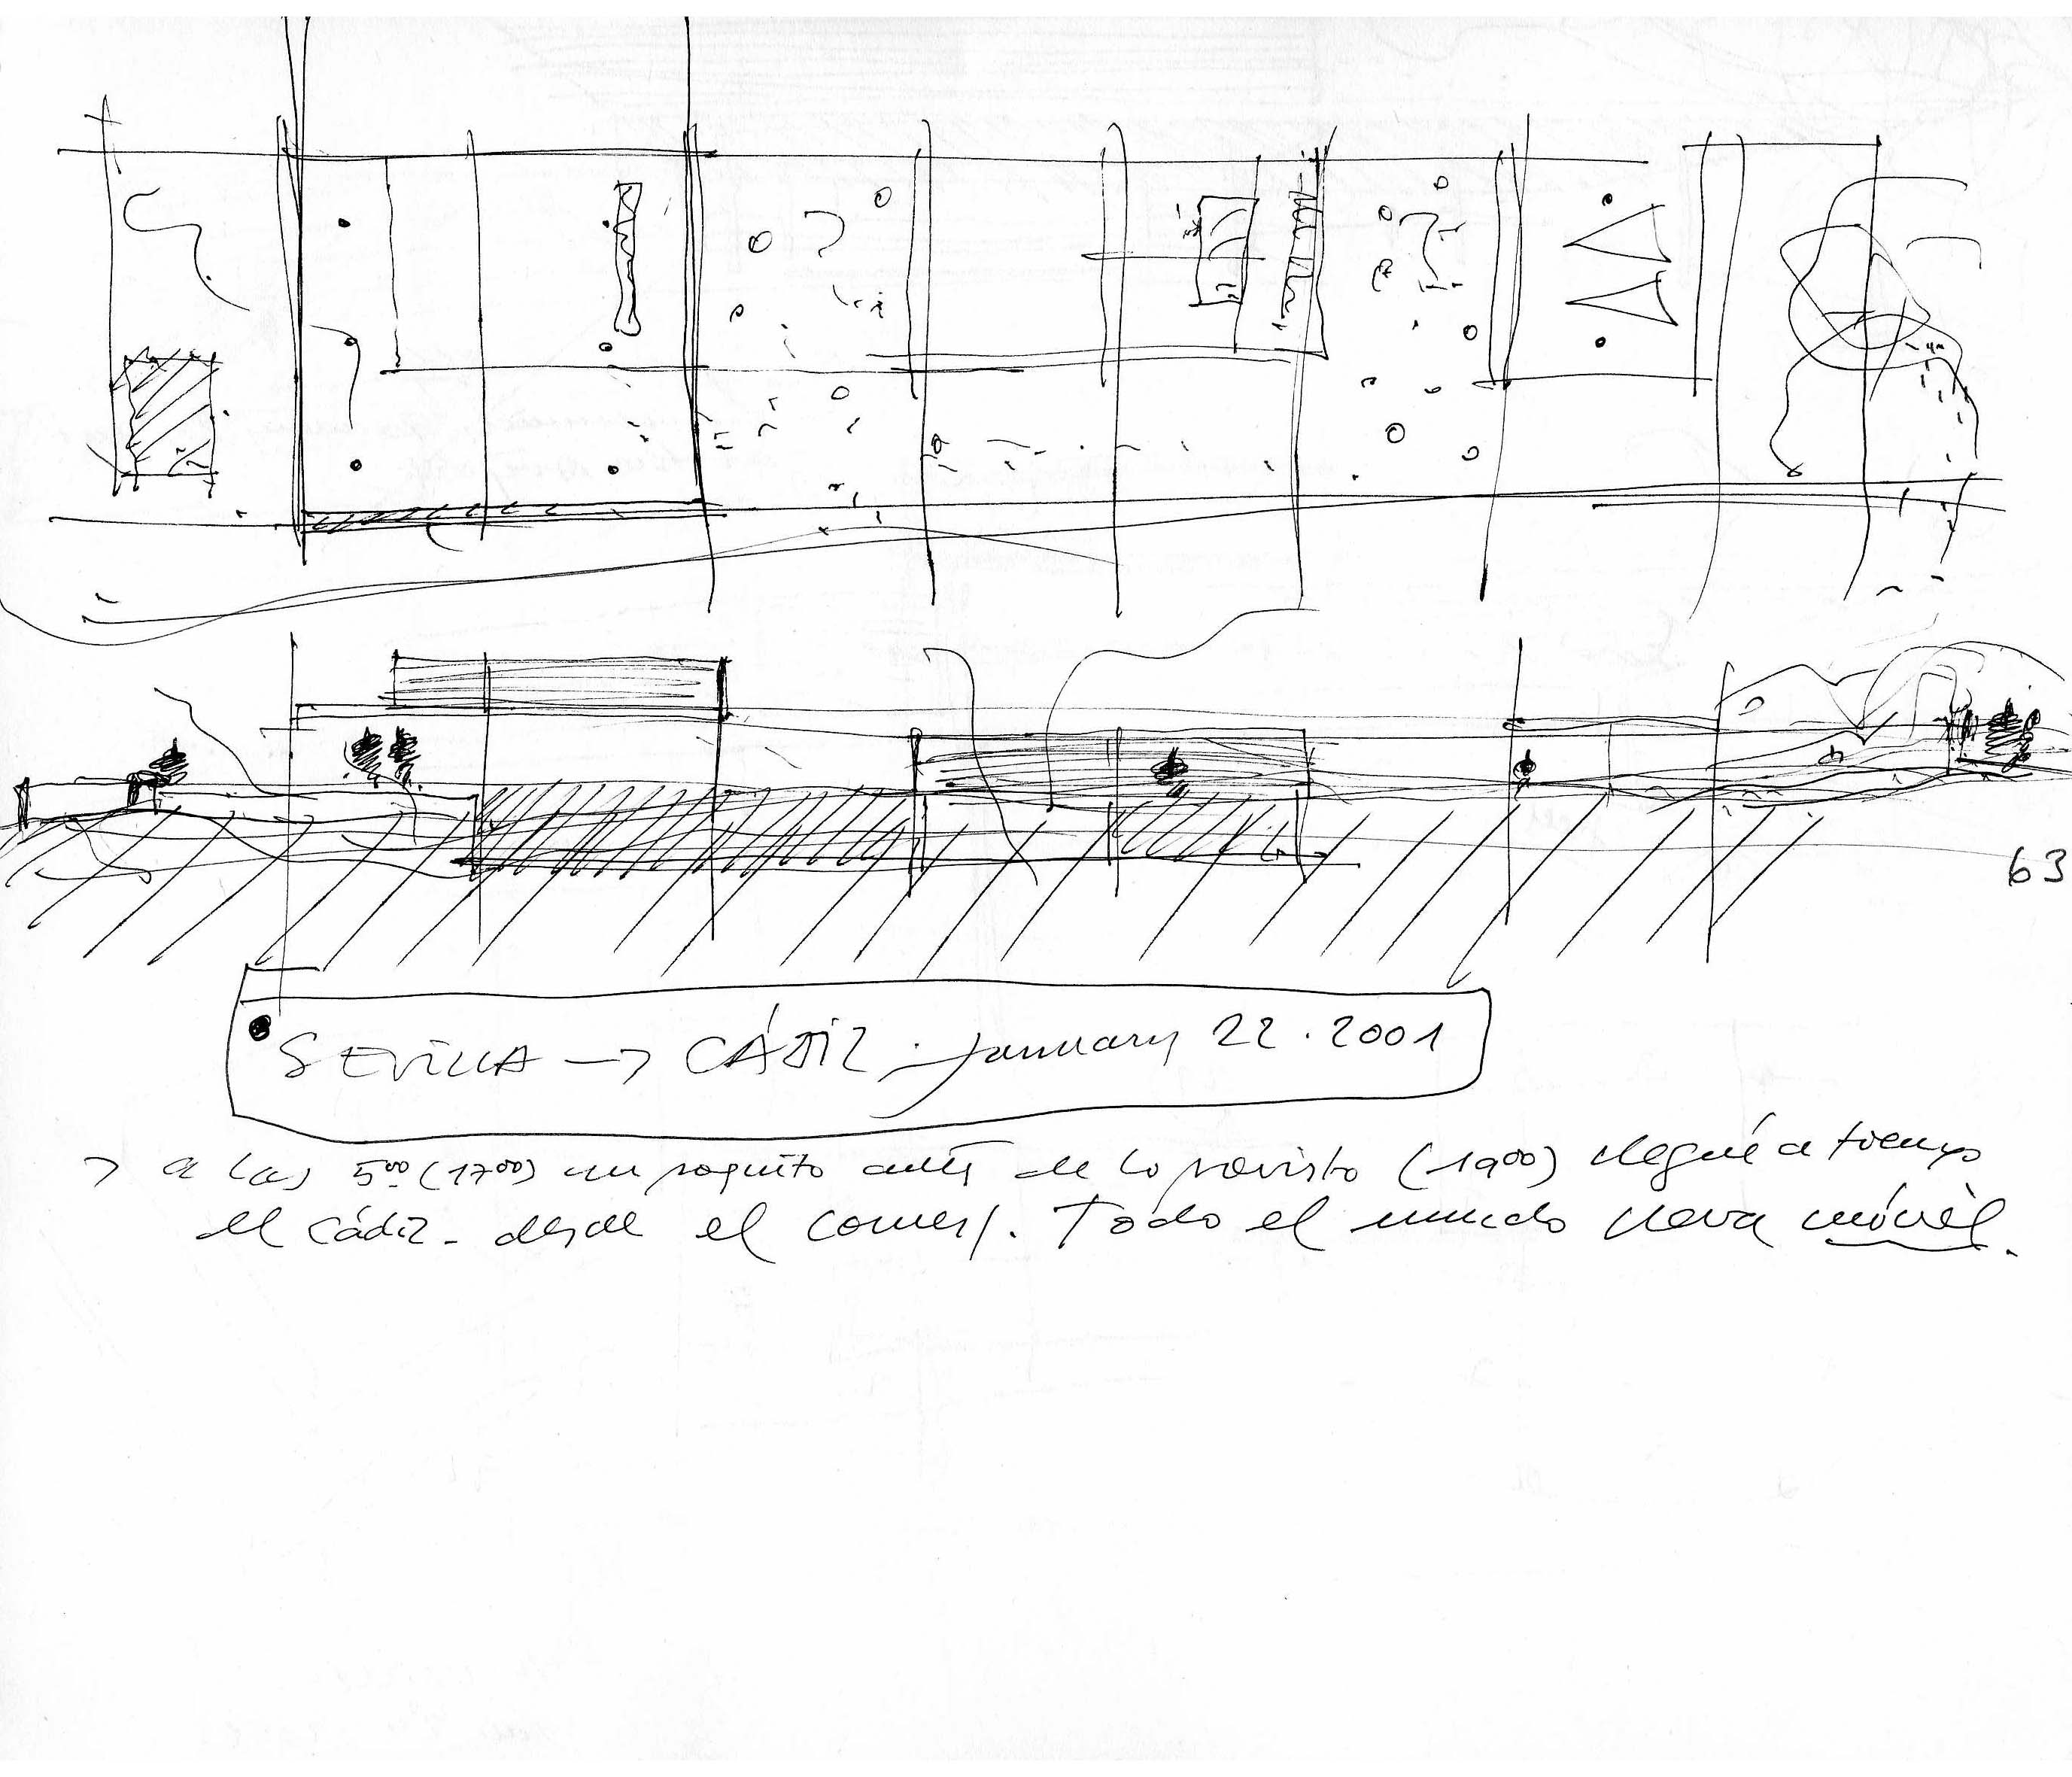 63
SEVILLA → CÁDIZ. January 22.2001
→ a las 5⁰⁰ (17⁰⁰) un poquito antes de lo previsto (19⁰⁰) llegué a tiempo
el Cádiz - desde el . Todo el mundo lleva móvil.